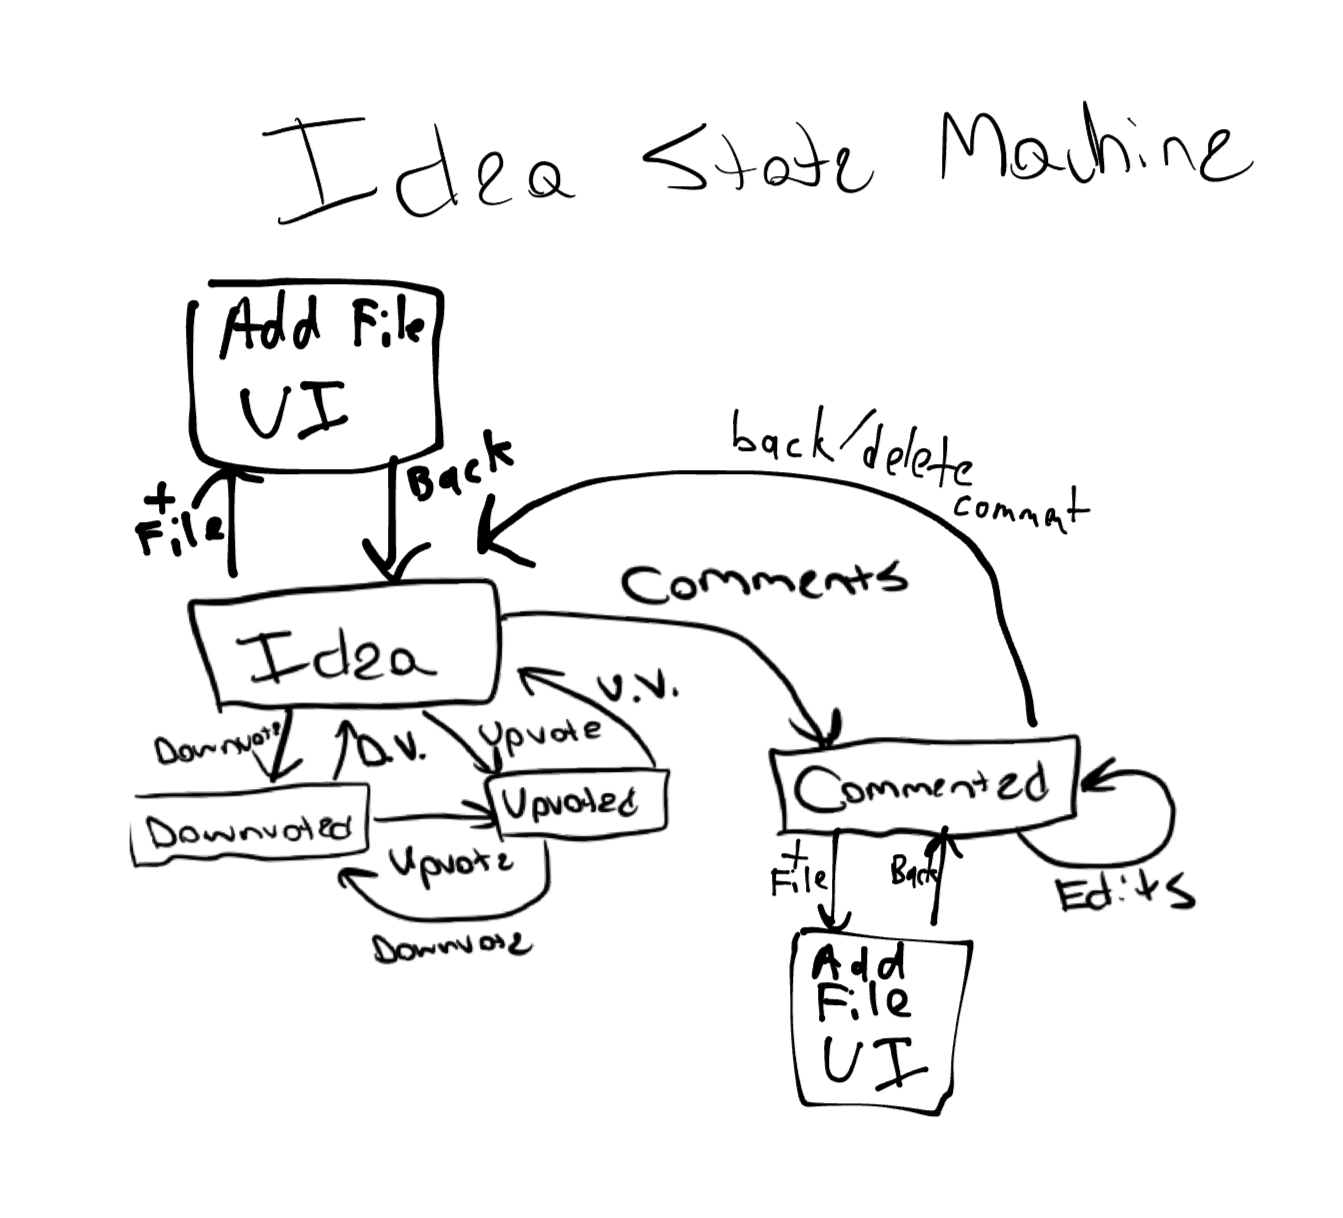 Idea State Machine
Add File
UI
+
File
Back
back/delete
comment
Comments
Idea
Downvote
D.V.
Upvote
U.V.
Downvoted
Upvoted
Upvote
Downvote
Commented
+
File
Back
Edits
Add
File
UI